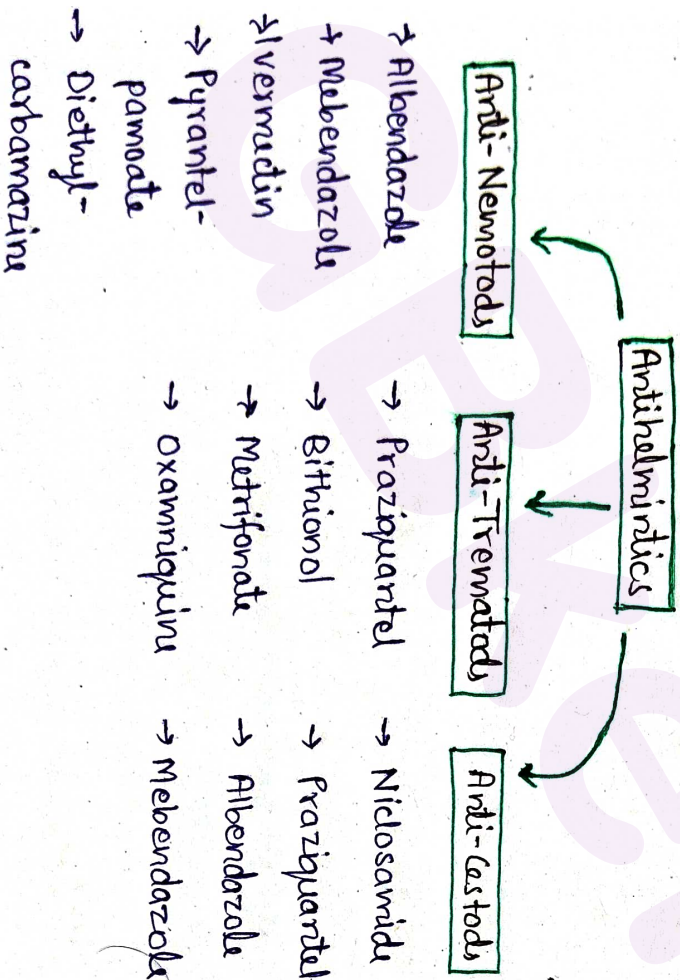 Antihelmintics
Anti-Nemotods
→ Albendazole
→ Mebendazole
→ Ivermectin
→ Pyrantel-
pamoate
→ Diethyl-
carbamazine
Anti-Trematods
→ Praziquantel
→ Bithionol
→ Metrifonate
→ Oxamniquine
Anti-Cestods
→ Niclosamide
→ Praziquantel
→ Albendazole
→ Mebendazole